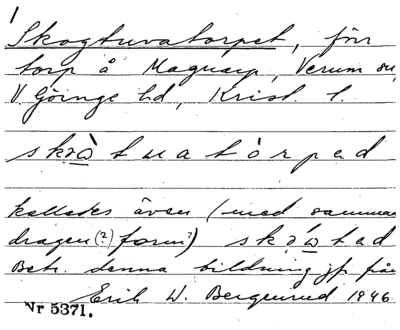 1
Skogtuvatorpet, för
torp å Magnarp, Verum sn,
V. Göinge hd, Krist. l.
skɔ̀ω tuatòrpəd
kallades även (med samman
dragen(?) form?) skɔ́ω təd
Betr. denna bildning jfr från
Erik W. Bergenrud 1946
Nr 5371.